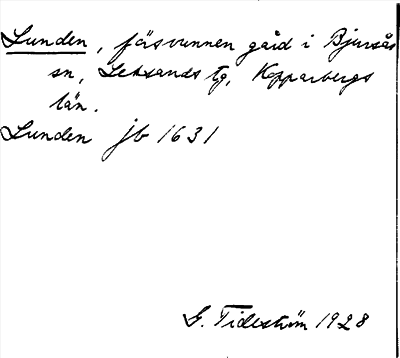 Lunden, försvunnen gård i Bjursås
sn, Leksands tg, Kopparbergs
län.
Lunden jb 1631
G. Tideström 1928